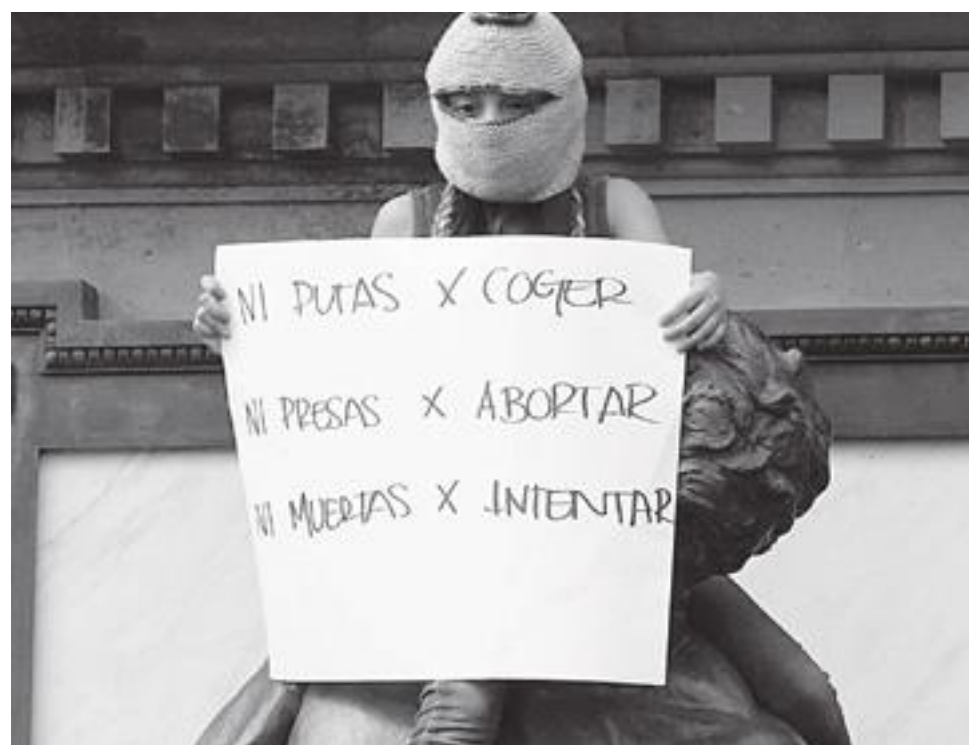 NI PUTAS X COGER
NI PRESAS X ABORTAR
NI MUERTAS X INTENTAR